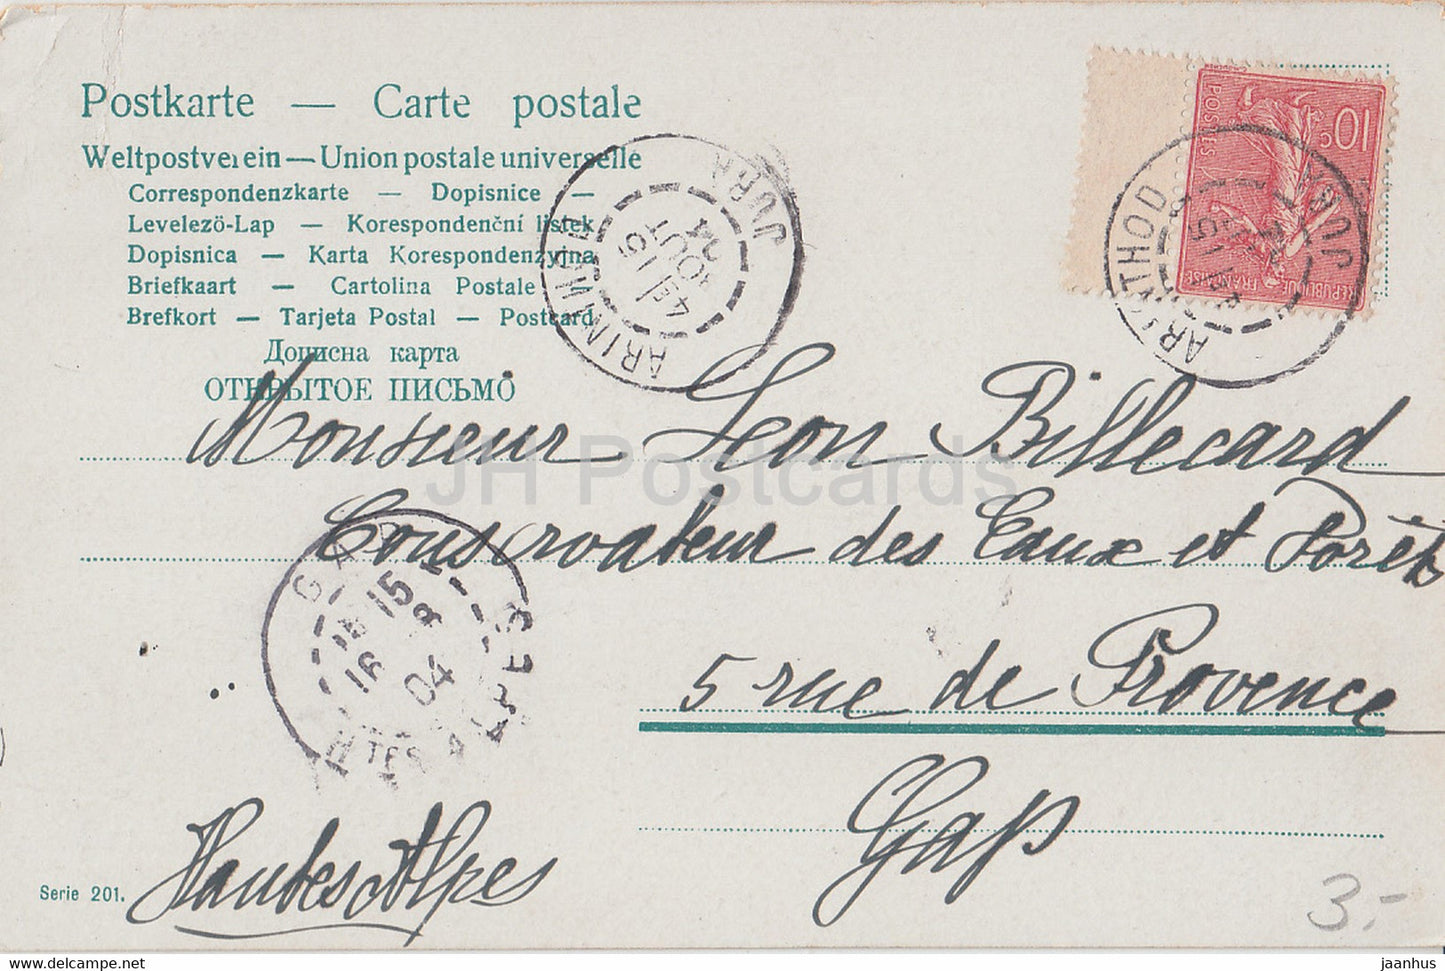 Postkarte — Carte postale
Weltpostverein — Union postale universelle
Correspondenzkarte — Dopisnice —
Levelező-Lap — Korespondenční lístek
Dopisnica — Karta Korespondenzyjna
Briefkaart — Cartolina Postale
Brefkort — Tarjeta Postal — Postcard
Дописна карта
ОТКРЫТОЕ ПИСЬМО
10c
POSTES
REPUBLIQUE FRANÇAISE
ARINTHOD
JURA
ARINTHOD
JURA
4E 15
AOUT
04
Monsieur Leon Billecard
Conservateur des Eaux et Forêts
5 rue de Provence
Gap
Hautes Alpes
GAP
15
16 8
04
HTES ALPES
Serie 201.
3.-
JH Postcards
jaanhus